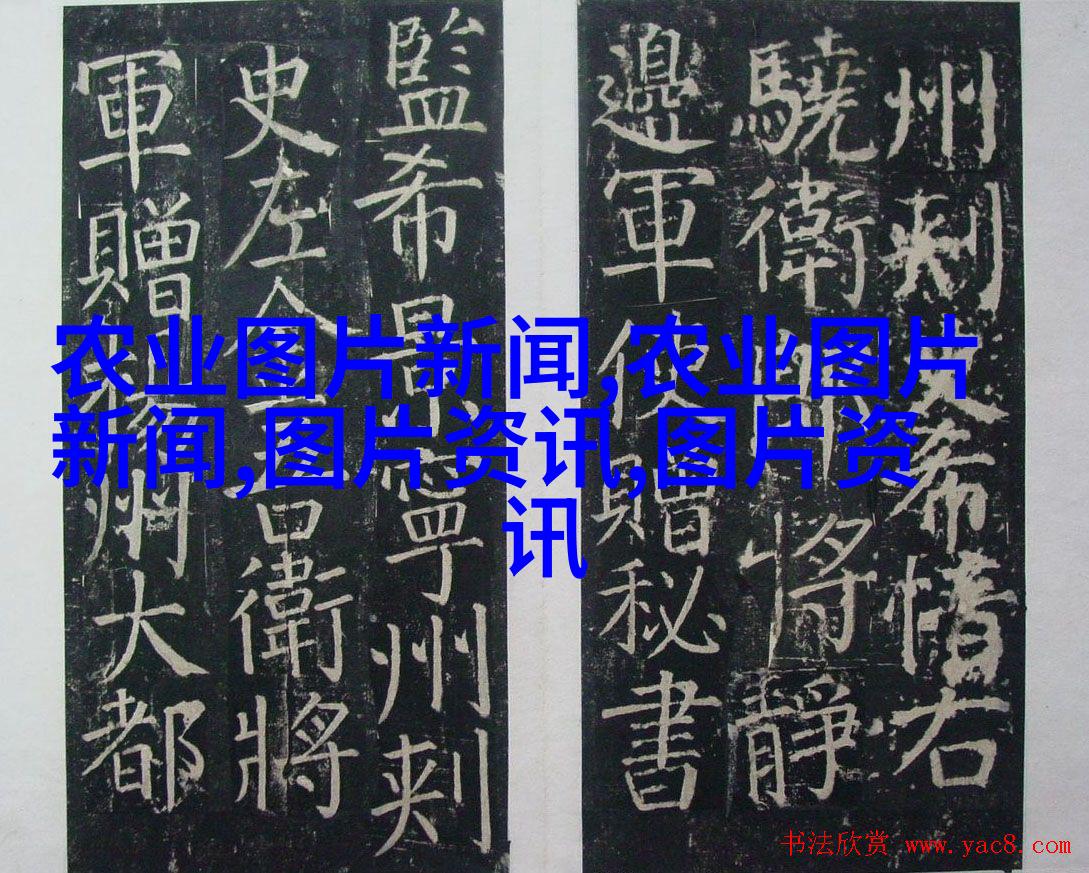 州刺史希愔右
驍衛郎將靜
邊軍使贈秘書
監希景寧州刺
史左金吾衛將
軍贈州大都
农业图片新闻,农业图片
新闻,图片资讯,图片资
讯
书法欣赏 www.yac8.com